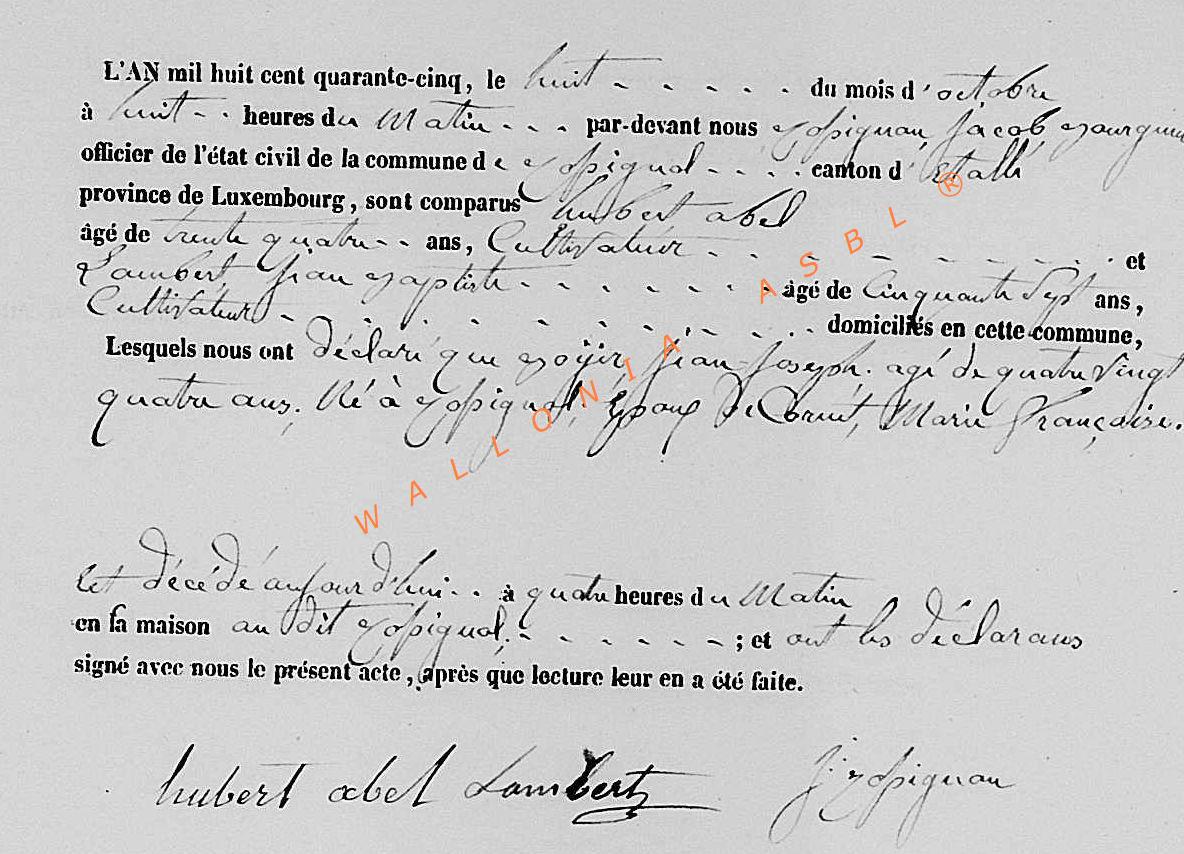 L'AN mil huit cent quarante-cinq, le huit - - - - - du mois d'octobre
à huit - - heures du Matin - - - par-devant nous Rossignon, Jacob, Bourgm
officier de l'état civil de la commune de Rossignol - - - - canton d'Etalle
province de Luxembourg, sont comparus hubert abel
âgé de trente quatre - - ans, Cultivateur - - - - - - - - - et
Lambert Jean Baptiste - - - - - - - âgé de Cinquante Sept ans,
Cultivateur - - - - - - - - - - domiciliés en cette commune,
Lesquels nous ont déclaré que Jean Joseph. agé de quatre Vingt
quatre ans. Né à Rossignol, Époux de Cornet, Marie Françoise.
Est décédé aujourd'hui - - à quatre heures du Matin
en sa maison au dit Rossignol, - - - - - - ; et ont les déclarans
signé avec nous le présent acte, après que lecture leur en a été faite.
hubert abel Lambert J. Rossignon
WALLONIA ASBL ®